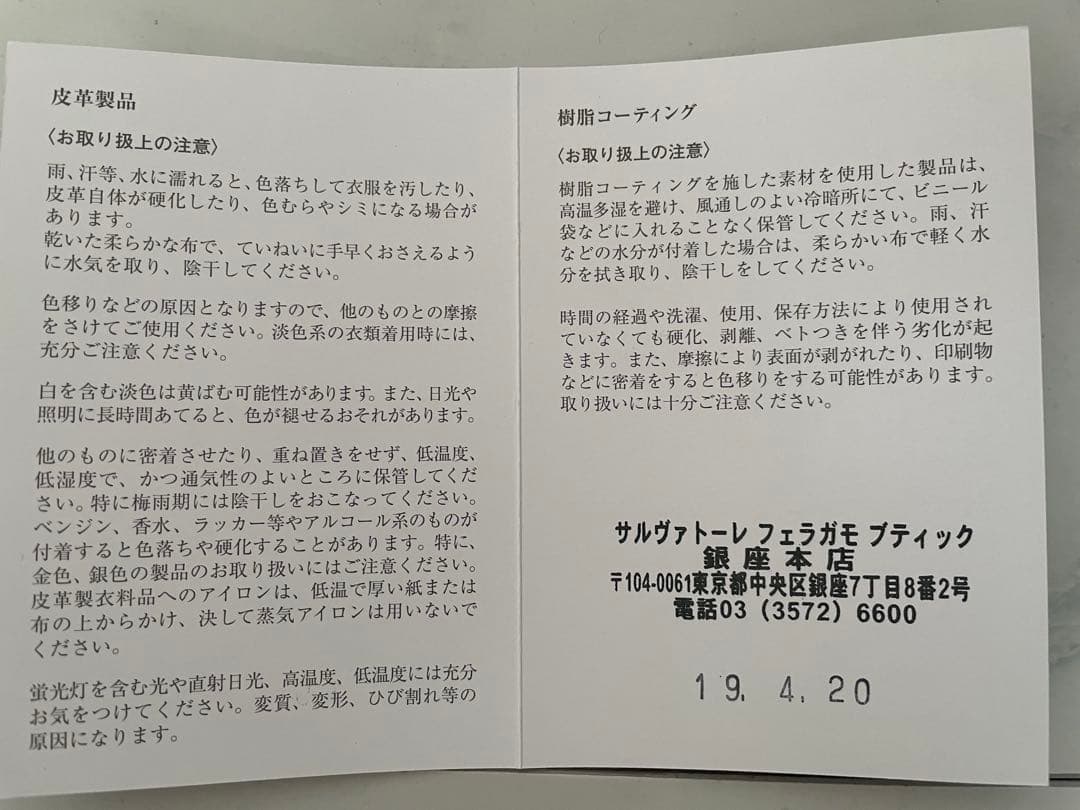 皮革製品
〈お取り扱上の注意〉
雨、汗等、水に濡れると、色落ちして衣服を汚したり、
皮革自体が硬化したり、色むらやシミになる場合が
あります。
乾いた柔らかな布で、ていねいに手早くおさえるよう
に水気を取り、陰干してください。
色移りなどの原因となりますので、他のものとの摩擦
をさけてご使用ください。淡色系の衣類着用時には、
充分ご注意ください。
白を含む淡色は黄ばむ可能性があります。また、日光や
照明に長時間あてると、色が褪せるおそれがあります。
他のものに密着させたり、重ね置きをせず、低温度、
低湿度で、かつ通気性のよいところに保管してくだ
さい。特に梅雨期には陰干しをおこなってください。
ベンジン、香水、ラッカー等やアルコール系のものが
付着すると色落ちや硬化することがあります。特に、
金色、銀色の製品のお取り扱いにはご注意ください。
皮革製衣料品へのアイロンは、低温で厚い紙または
布の上からかけ、決して蒸気アイロンは用いないで
ください。
蛍光灯を含む光や直射日光、高温度、低温度には充分
お気をつけてください。変質、変形、ひび割れ等の
原因になります。
樹脂コーティング
〈お取り扱上の注意〉
樹脂コーティングを施した素材を使用した製品は、
高温多湿を避け、風通しのよい冷暗所にて、ビニール
袋などに入れることなく保管してください。雨、汗
などの水分が付着した場合は、柔らかい布で軽く水
分を拭き取り、陰干しをしてください。
時間の経過や洗濯、使用、保存方法により使用され
ていなくても硬化、剥離、ベトつきを伴う劣化が起
きます。また、摩擦により表面が剥がれたり、印刷物
などに密着をすると色移りをする可能性があります。
取り扱いには十分ご注意ください。
サルヴァトーレ フェラガモ ブティック
銀座本店
〒104-0061東京都中央区銀座7丁目8番2号
電話03（3572）6600
19. 4. 20